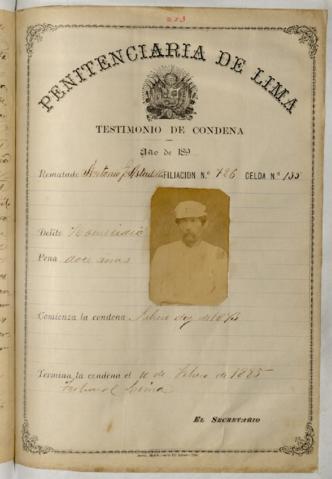 223
PENITENCIARIA DE LIMA
TESTIMONIO DE CONDENA
Año de 189
Rematado Antonio FILIACIÓN N.º 726 CELDA N.º 155
Delito Homicidio
Pena doce anos
Comienza la condena Febrero de 1873
Termina la condena el 10 de Febrero de 1885
Tribunal Lima
EL SECRETARIO